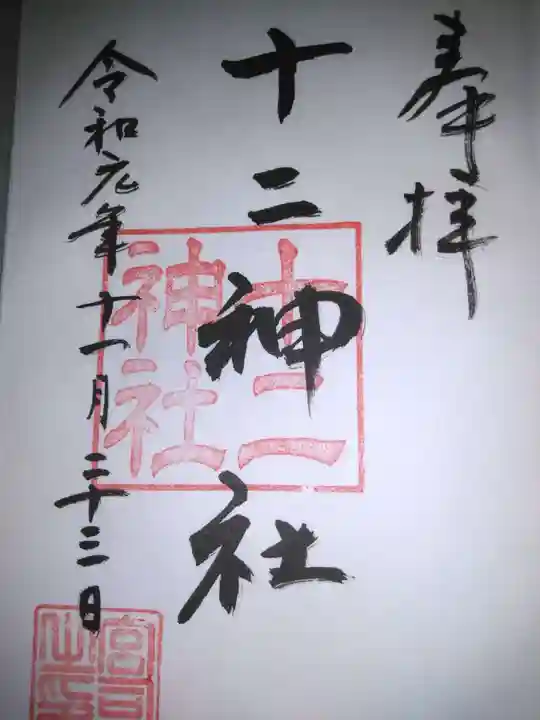 奉拝
十二神社
十二
神社
令和元年十一月二十三日
宮司
之印